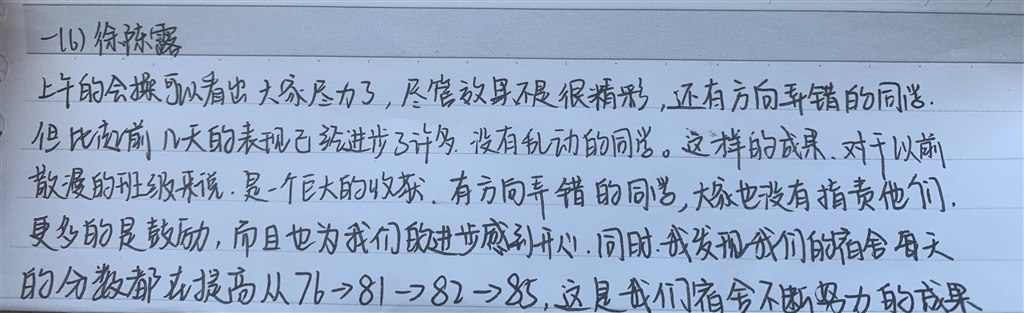 一(6) 徐陈露
上午的会操可以看出大家尽力了，尽管效果不是很精彩，还有方向弄错的同学.
但比起前几天的表现已经进步了许多.没有乱动的同学。这样的成果.对于以前
散漫的班级来说.是一个巨大的收获.有方向弄错的同学,大家也没有指责他们.
更多的是鼓励,而且也为我们的进步感到开心.同时.我发现我们的宿舍每天
的分数都在提高从76→81→82→85,这是我们宿舍不断努力的成果